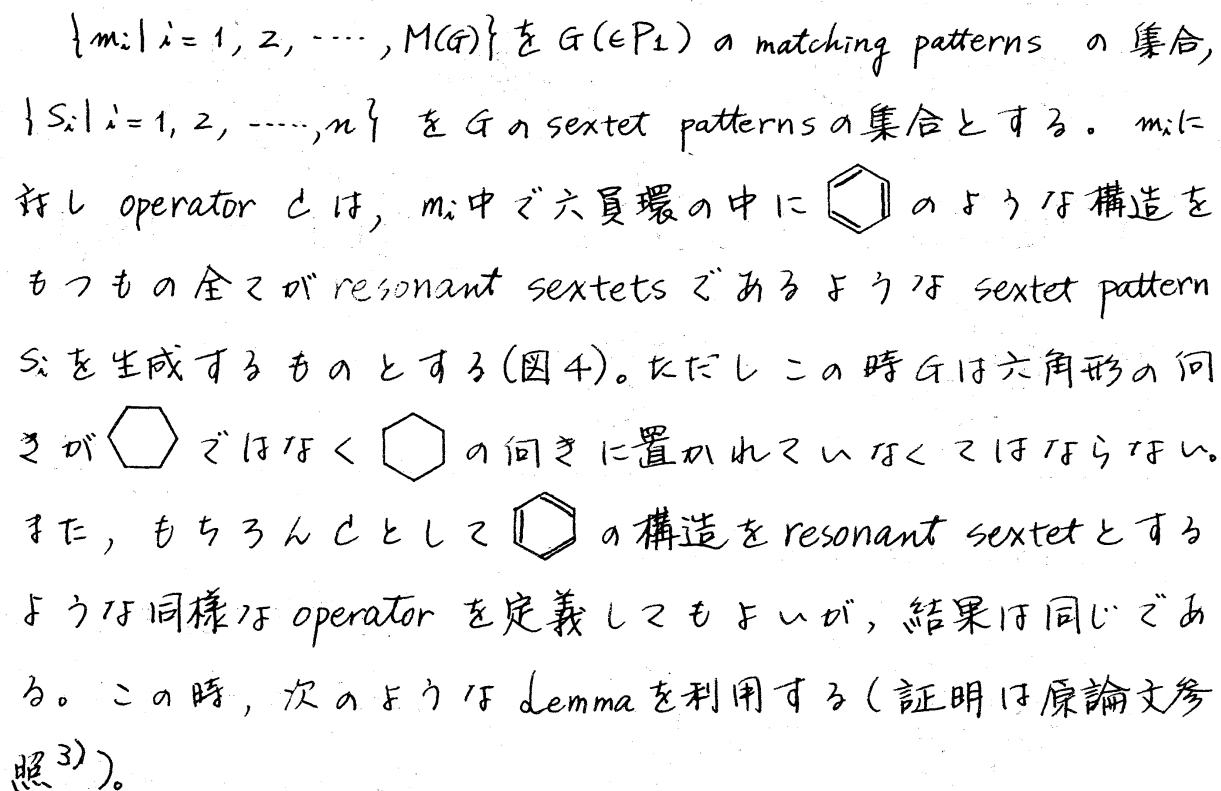 {mi | i = 1, 2, ‥‥, M(G)} を G(∈P1) の matching patterns の集合,
{Si | i = 1, 2, ‥‥‥, n} を G の sextet patterns の集合とする。 mi に
対し operator C は, mi 中で六員環の中に のような構造を
もつもの全てが resonant sextets であるような sextet pattern
Si を生成するものとする(図4)。ただしこの時 G は六角形の向
きが ではなく の向きに置かれていなくてはならない。
また, もちろん C として の構造を resonant sextet とする
ような同様な operator を定義してもよいが, 結果は同じであ
る。この時, 次のような Lemma を利用する(証明は原論文参
照3))。